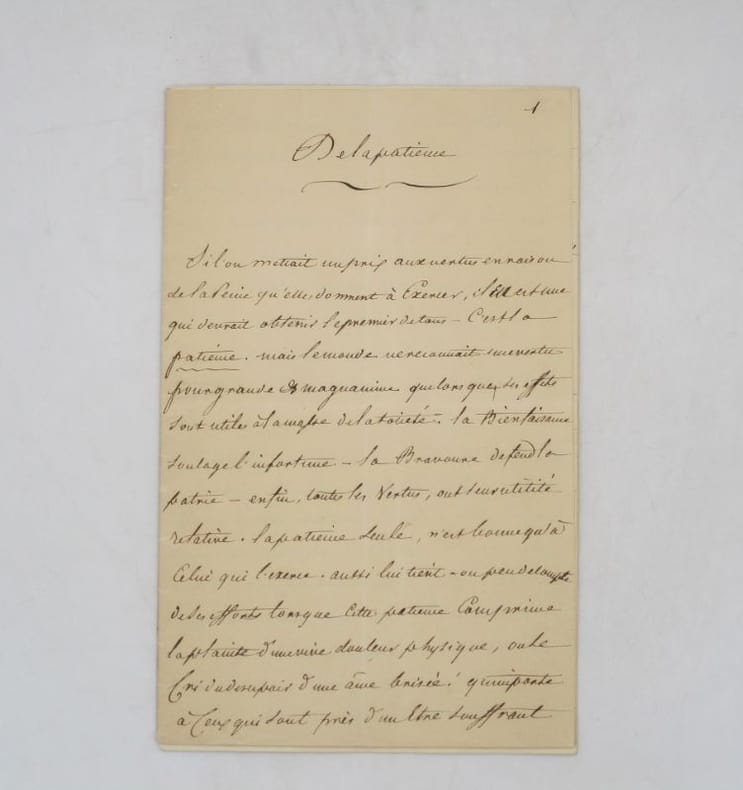 1
De la patience
Si l'on mettait un prix aux vertus en raison
de la Peine qu'elles donnent à Exercer, il en est une
qui devrait obtenir le premier de tous - C'est la
patience. mais le monde ne reconnait une vertu
pour grande & magnanime que lorsque, ses effets
sont utiles à la masse de la société. la Bienfaisance
soulage l'infortune - la Bravoure defend la
patrie - enfin, toutes les Vertus, ont leur utilité
relative. la patience seule, n'est bonne qu'à
Celui qui l'exerce. aussi lui tient-on peu de compte
de ses efforts lorsque Cette patience Comprime
la plainte d'une vive douleur physique, ou le
Cri du desespoir d'une âme brisée! qu'importe
à Ceux qui sont près d'un Etre souffrant